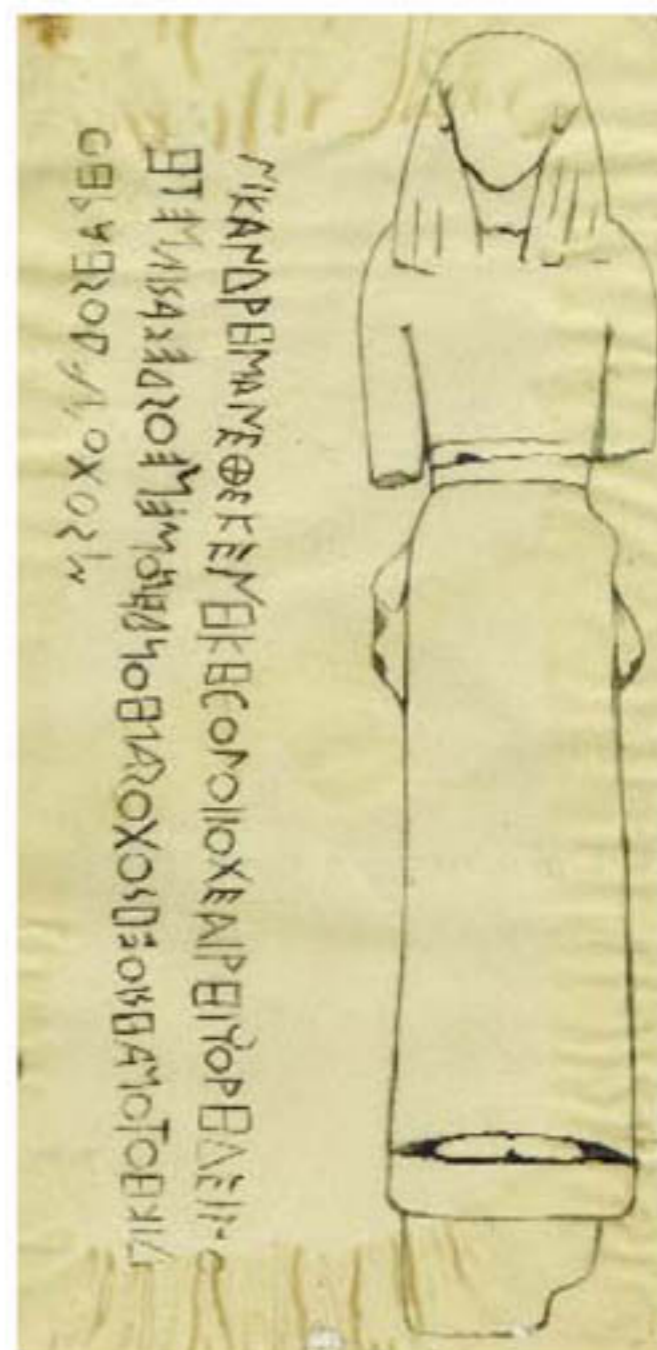 ΝΙΚΑΝΔΡΗΜΑΝΕΘΕΚΕΝΗΚΗΒΟΛΟΙΙΟΧΕΑΙΡΗΙϘΟΡΗΔΕΙΝΟ
ΔΙΚΗΟΤΟΝΑΗΣΙΟΕΗΣΟΧΟΣΑΛΗΟΝΔΕΙΝΟΜΕΝΕΟΣΔΕΚΑΣΙΓΝΕΤΗ
ΦΗΡΑΗΣΟΔΑΛΟΧΟΣΝ